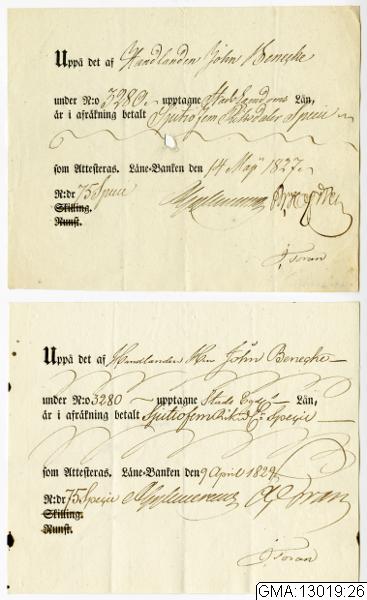 Uppå det af Handlanden John Benecke
under N:o 3280. upptagne Stads Egendoms Län,
är i afräkning betalt Sjuttiofem Riksdaler Specie
som Attesteras. Låne-Banken den 14 Maij 1827.
R:dr 75 Specie
Skilling.
Runst.
Uppå det af Handlanden Herr John Benecke
under N:o 3280 upptagne Stads Egds Län,
är i afräkning betalt Sjuttiofem Riksd Specie
som Attesteras. Låne-Banken den 9 April 1829
R:dr 75 Specie
Skilling.
Runst.
GMA:13019:26